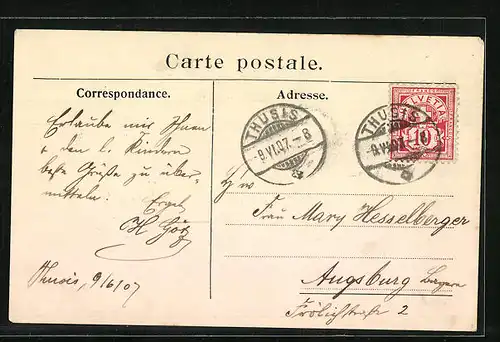 Carte postale.
Correspondance.
Adresse.
Erlaube mir Ihnen
+ den l. Kindern
beste Grüße zu über-
mitteln.
Ergeb.
H Götz
Thusis, 9/6/07
THUSIS
-9.VI.07.-8
THUSIS
-9.VI.07
HELVETIA
10
Frau Mary Hesselberger
Augsburg Bayern
Frölichstraße 2